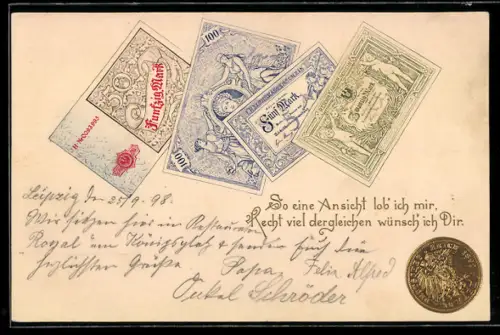 Fünfzig Mark
100
100
Fünf Mark
So eine Ansicht lob' ich mir,
Recht viel dergleichen wünsch' ich Dir.
Leipzig den 25/9. 98.
Wir sitzen hier im Restaurant
Royal am Königsplatz & senden Euch die
herzlichsten Grüße
Papa, Felix Alfred
Onkel Schröder